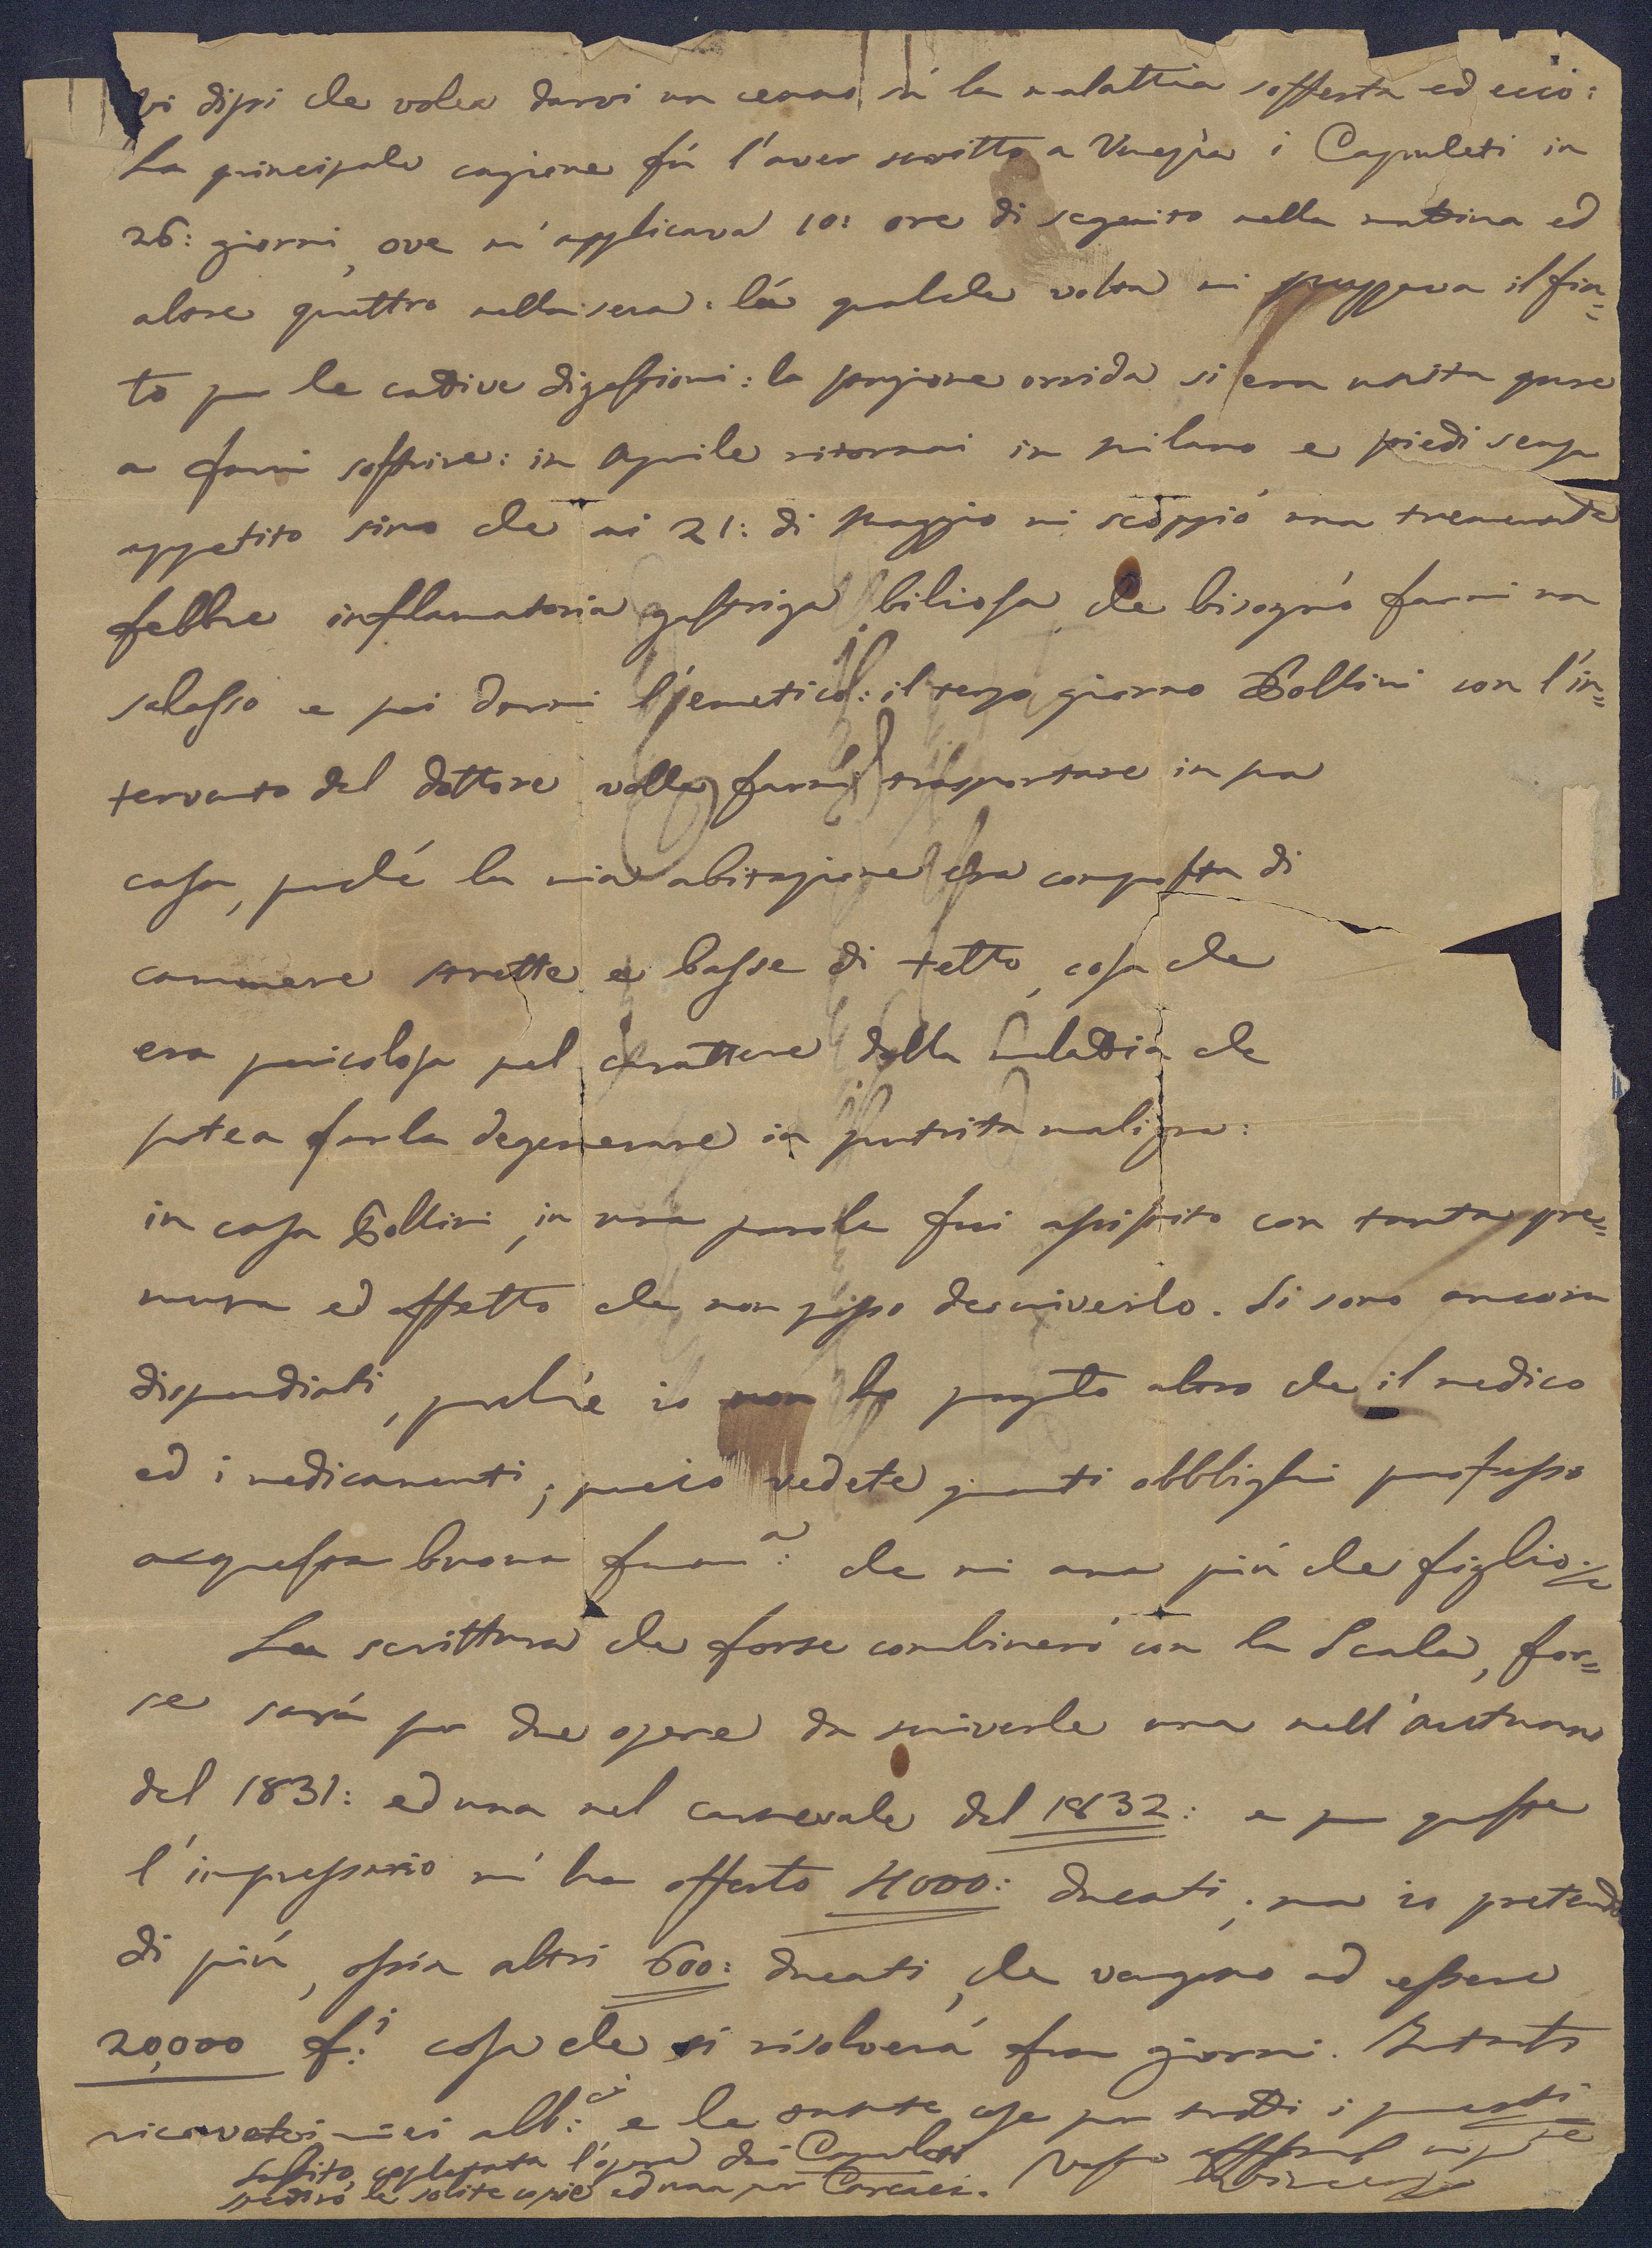 Vi dissi che volea darvi un cenno sú la malattia sofferta ed ecco:
La principale cagione fú l'aver scritto a Venezia i Capuleti in
26: giorni, ove m'applicava 10: ore di seguito nella mattina ed
altre quattro nella sera: lá qualche volta mi il fia=
to per le cattive digestioni: la stagione orrida si era unita pure
a farmi soffrire: in Aprile ritornai in Milano e piedi senza
appetito sino che ai 21: di Maggio mi scoppió una tremenda
febbre inflamatoria gastriga biliosa, che bisognó farmi un
salasso e poi darmi l'emetico: il terzo giorno Pollini con l'in=
tervento del dottore volle farmi trasportare in sua
casa, perché la mia abitazione era composta di
cammere strette e basse di tetto, cosa che
era pericolosa pel carattere della malattia che
potea farla degenerare in putrita maligna:
in casa Pollini, in una parola fui assistito con tanta pre=
mura ed affetto che non posso descriverlo. Si sono ancora
dispendiati, perché io non ho pagato altro che il medico
ed i medicamenti; perció vedete quanti obblighi professo
a questa buona fam:a che mi ama piú che figlio.
La scrittura che forse combineró con la Scala, for=
se sará per due opere da scriverle una nell'autunno
del 1831: ed una nel carnevale del 1832: e per queste
l'impressario m'ha offerto 4000: ducati; ma io pretendo
di piú, ossia altri 600: ducati, che vengono ad essere
20,000 f:i cosa che si risolverá fra giorni. Intanto
ricevetevi miei abb:ci e le tante cose per tutti i parenti
Subito l'opera dei Capuleti Vostro
spediró le solite copie ed una per Carcaci. Vincenzo